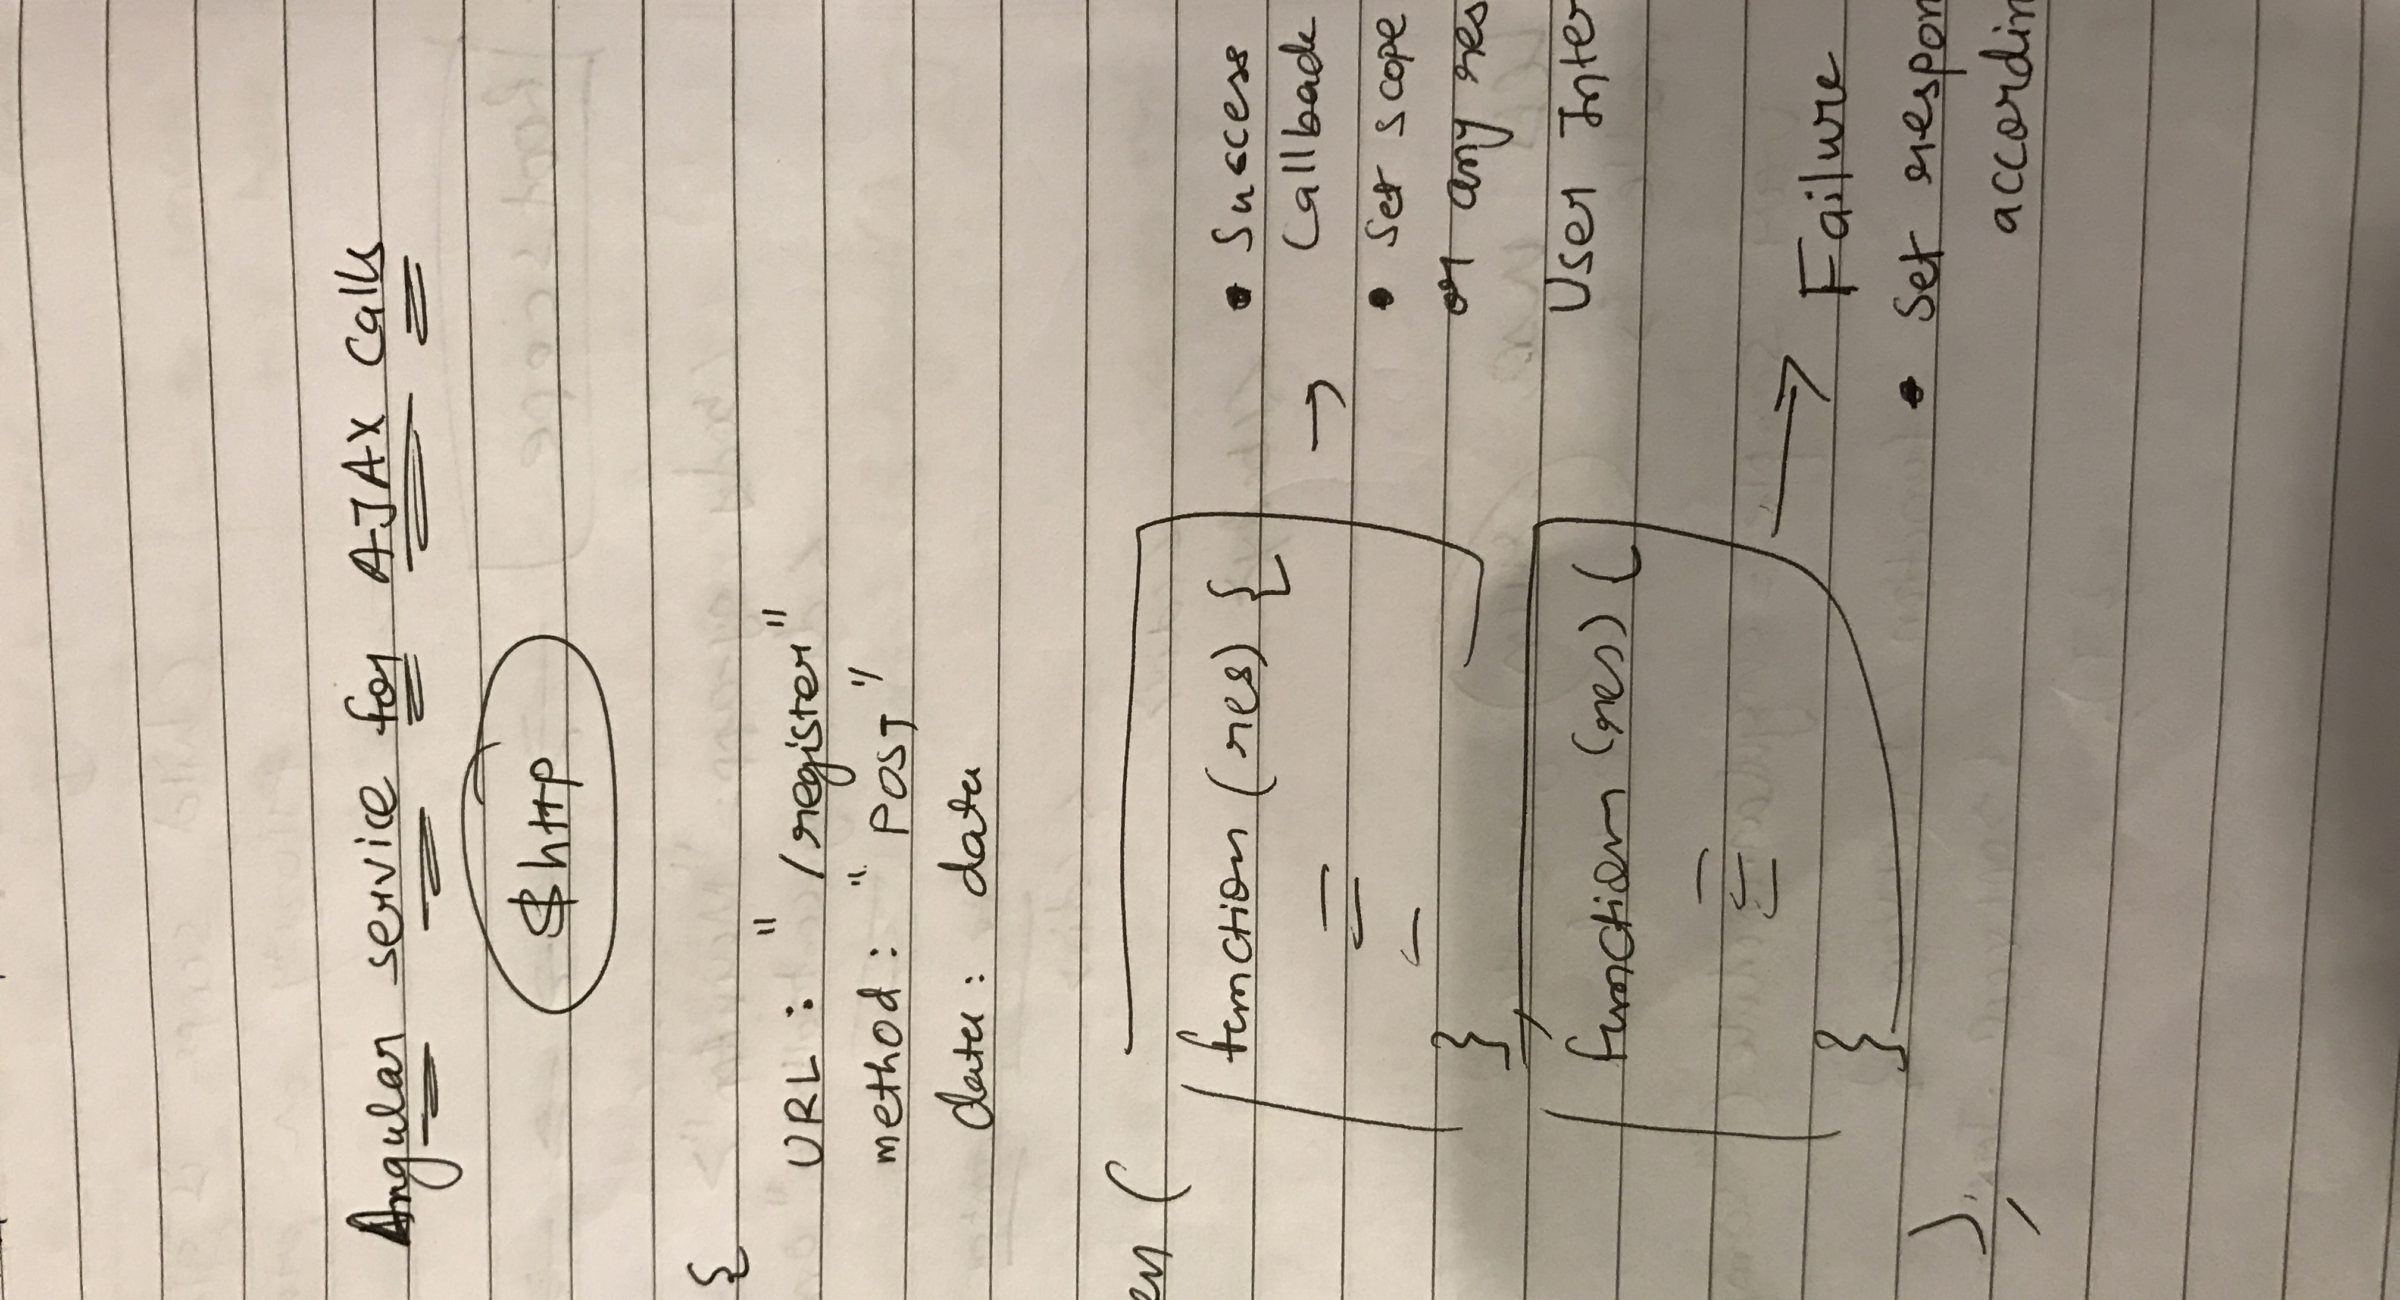 Angular service for AJAX calls
$http
{
URL : " /register"
method : " POST "
data : data
en (
function (res) {
• Success
Callback
• Set scope
or any res
}
,
User Inter
function (res) {
}
Failure
• Set respon
accordin
);